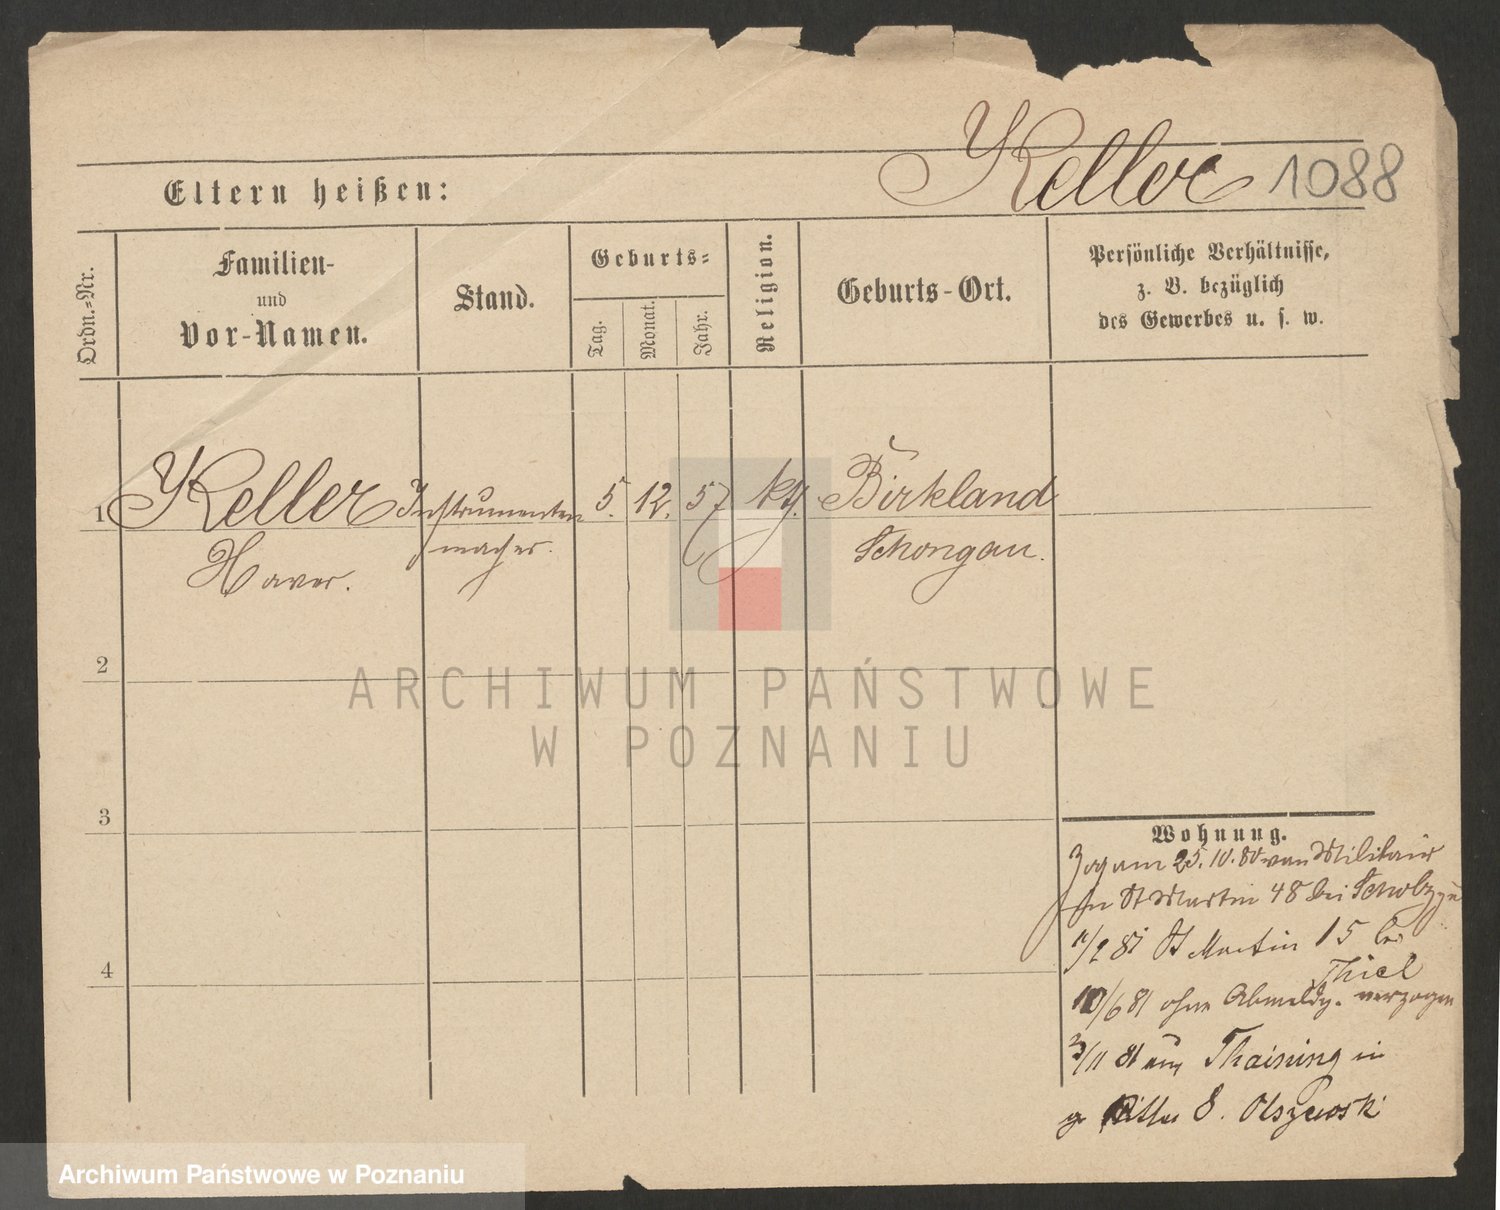 Keller 1088
Eltern heißen:
Ordn.=Nr.
Familien-
und
Vor-Namen.
Stand.
Geburts=
Tag.
Monat.
Jahr.
Religion.
Geburts-Ort.
Persönliche Verhältnisse,
z. B. bezüglich
des Gewerbes u. s. w.
1 Keller Instrumenten 5. 12. 57 kth. Birkland
Xaver. macher. Schongau.
2
3
4
Wohnung.
Zog am 25.10.80 vom Militair
St Martin 48 bei Scholz zu
11/2 81 St Martin 15 bei
Thiel
10/6 81 ohne Abmeldg. verzogen
3/11 81 aus Thaining in
Ritter 8. Olszewski
ARCHIWUM PAŃSTWOWE
W POZNANIU
Archiwum Państwowe w Poznaniu